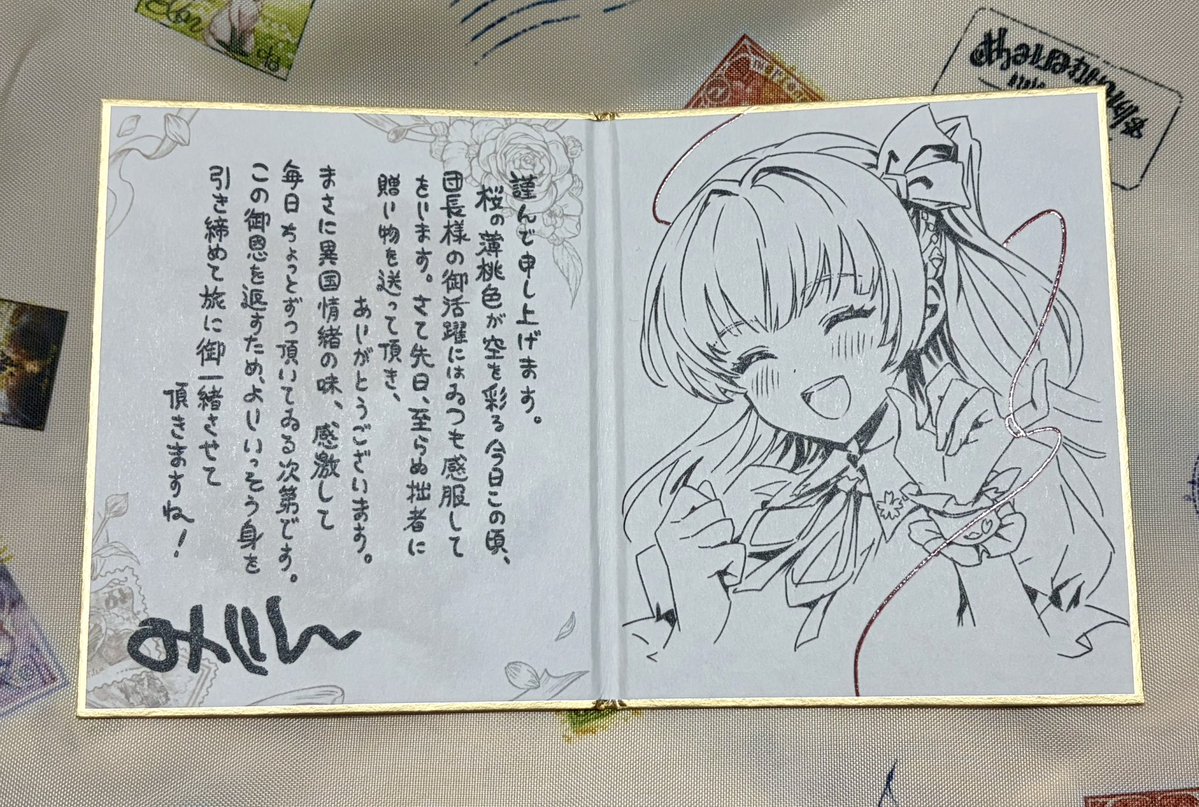 謹んで申し上げます。
桜の薄桃色が空を彩る今日この頃、
団長様の御活躍にはゐつも感服して
をります。さて先日、至らぬ拙者に
贈り物を送って頂き、
ありがとうございます。
まさに異国情緒の味、感激して
毎日ちょっとずつ頂いてゐる次第です。
この御恩を返すため、よりいっそう身を
引き締めて旅に御一緒させて
頂きますね!
みりん